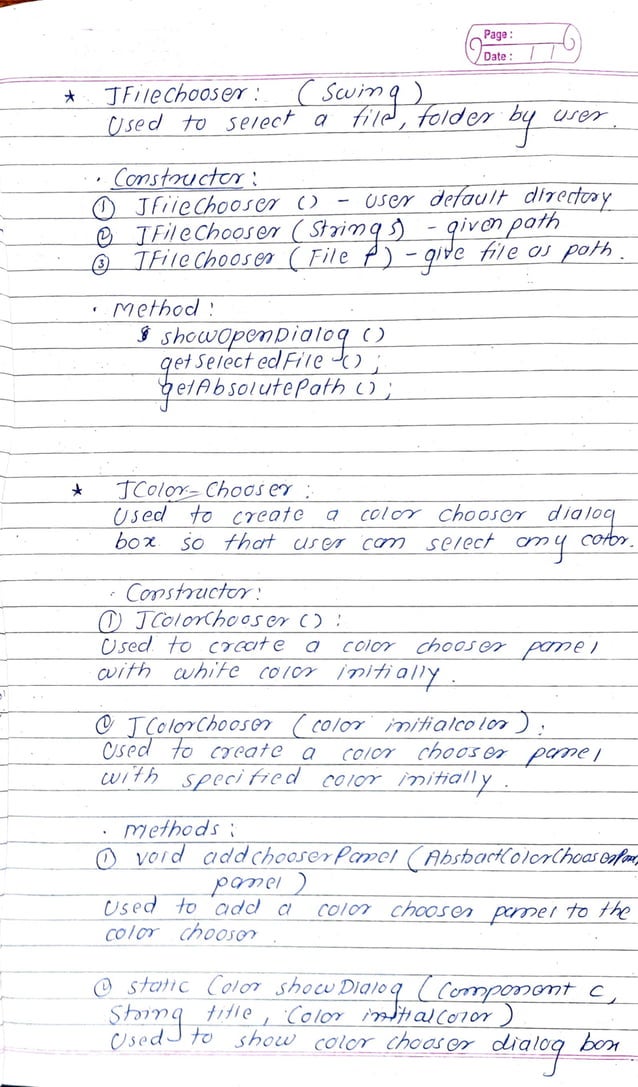 Page :
Date : / /
* JFileChooser : (Swing)
Used to select a file, folder by user.
· Constructor :
① JFileChooser () - user default directory
② JFileChooser (String s) - given path
③ JFileChooser (File f) - give file as path.
· Method :
showOpenDialog ()
getSelectedFile () ;
getAbsolutePath () ;
* JColor-Chooser :
Used to create a color chooser dialog
box so that user can select any color.
· Constructor :
① JColorChooser () :
Used to create a color chooser panel
with white color initially.
② JColorChooser (color initialcolor) :
Used to create a color chooser panel
with specified color initially.
· Methods :
① void addchooserPanel (AbstractColorChooserPanel
panel)
Used to add a color chooser panel to the
color chooser
② static Color showDialog (Component c,
String title, Color initialColor)
Used to show color chooser dialog box